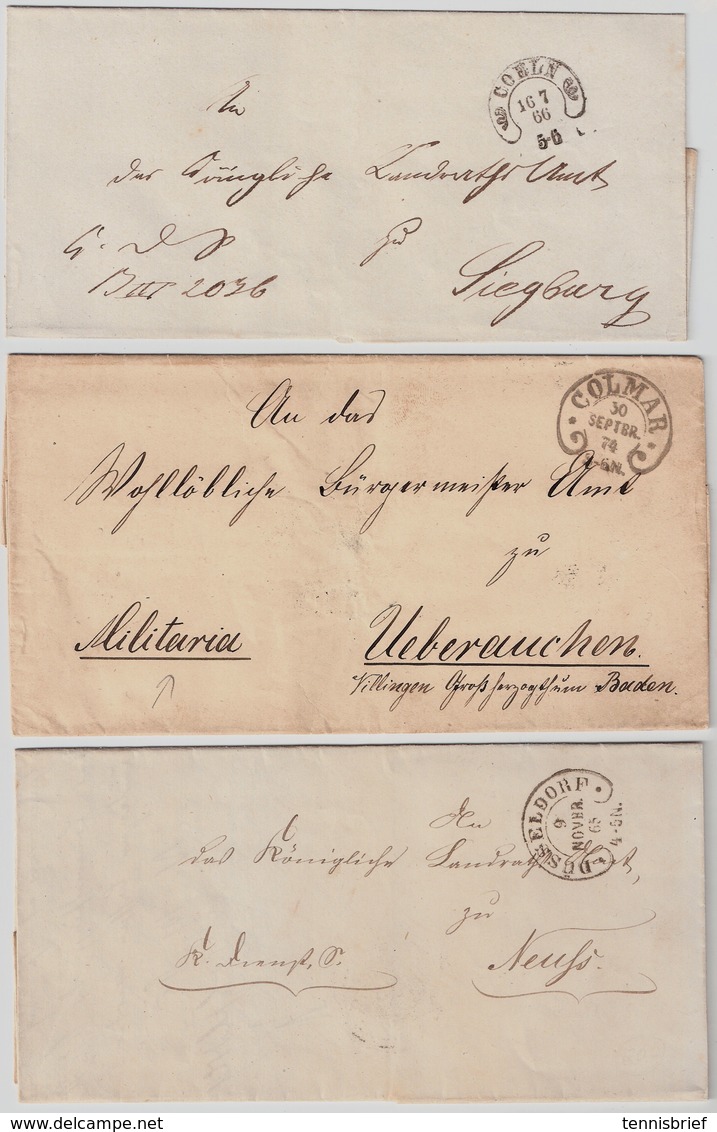 COELN
16 7
66
5-6
An
das Königliche Landraths Amt
zu
B III 2036
Siegburg
COLMAR
30
SEPTBR.
74
An das
Wohllöbliche Bürgermeister Amt
zu
Militaria
Ueberauchen.
Villingen Großherzogthum Baden.
DÜSSELDORF
9
NOVBR.
65
4-5N.
An
das Königliche Landraths Amt,
zu
K. Dienst. S.
Neuss.
delcampe.net
tennisbrief